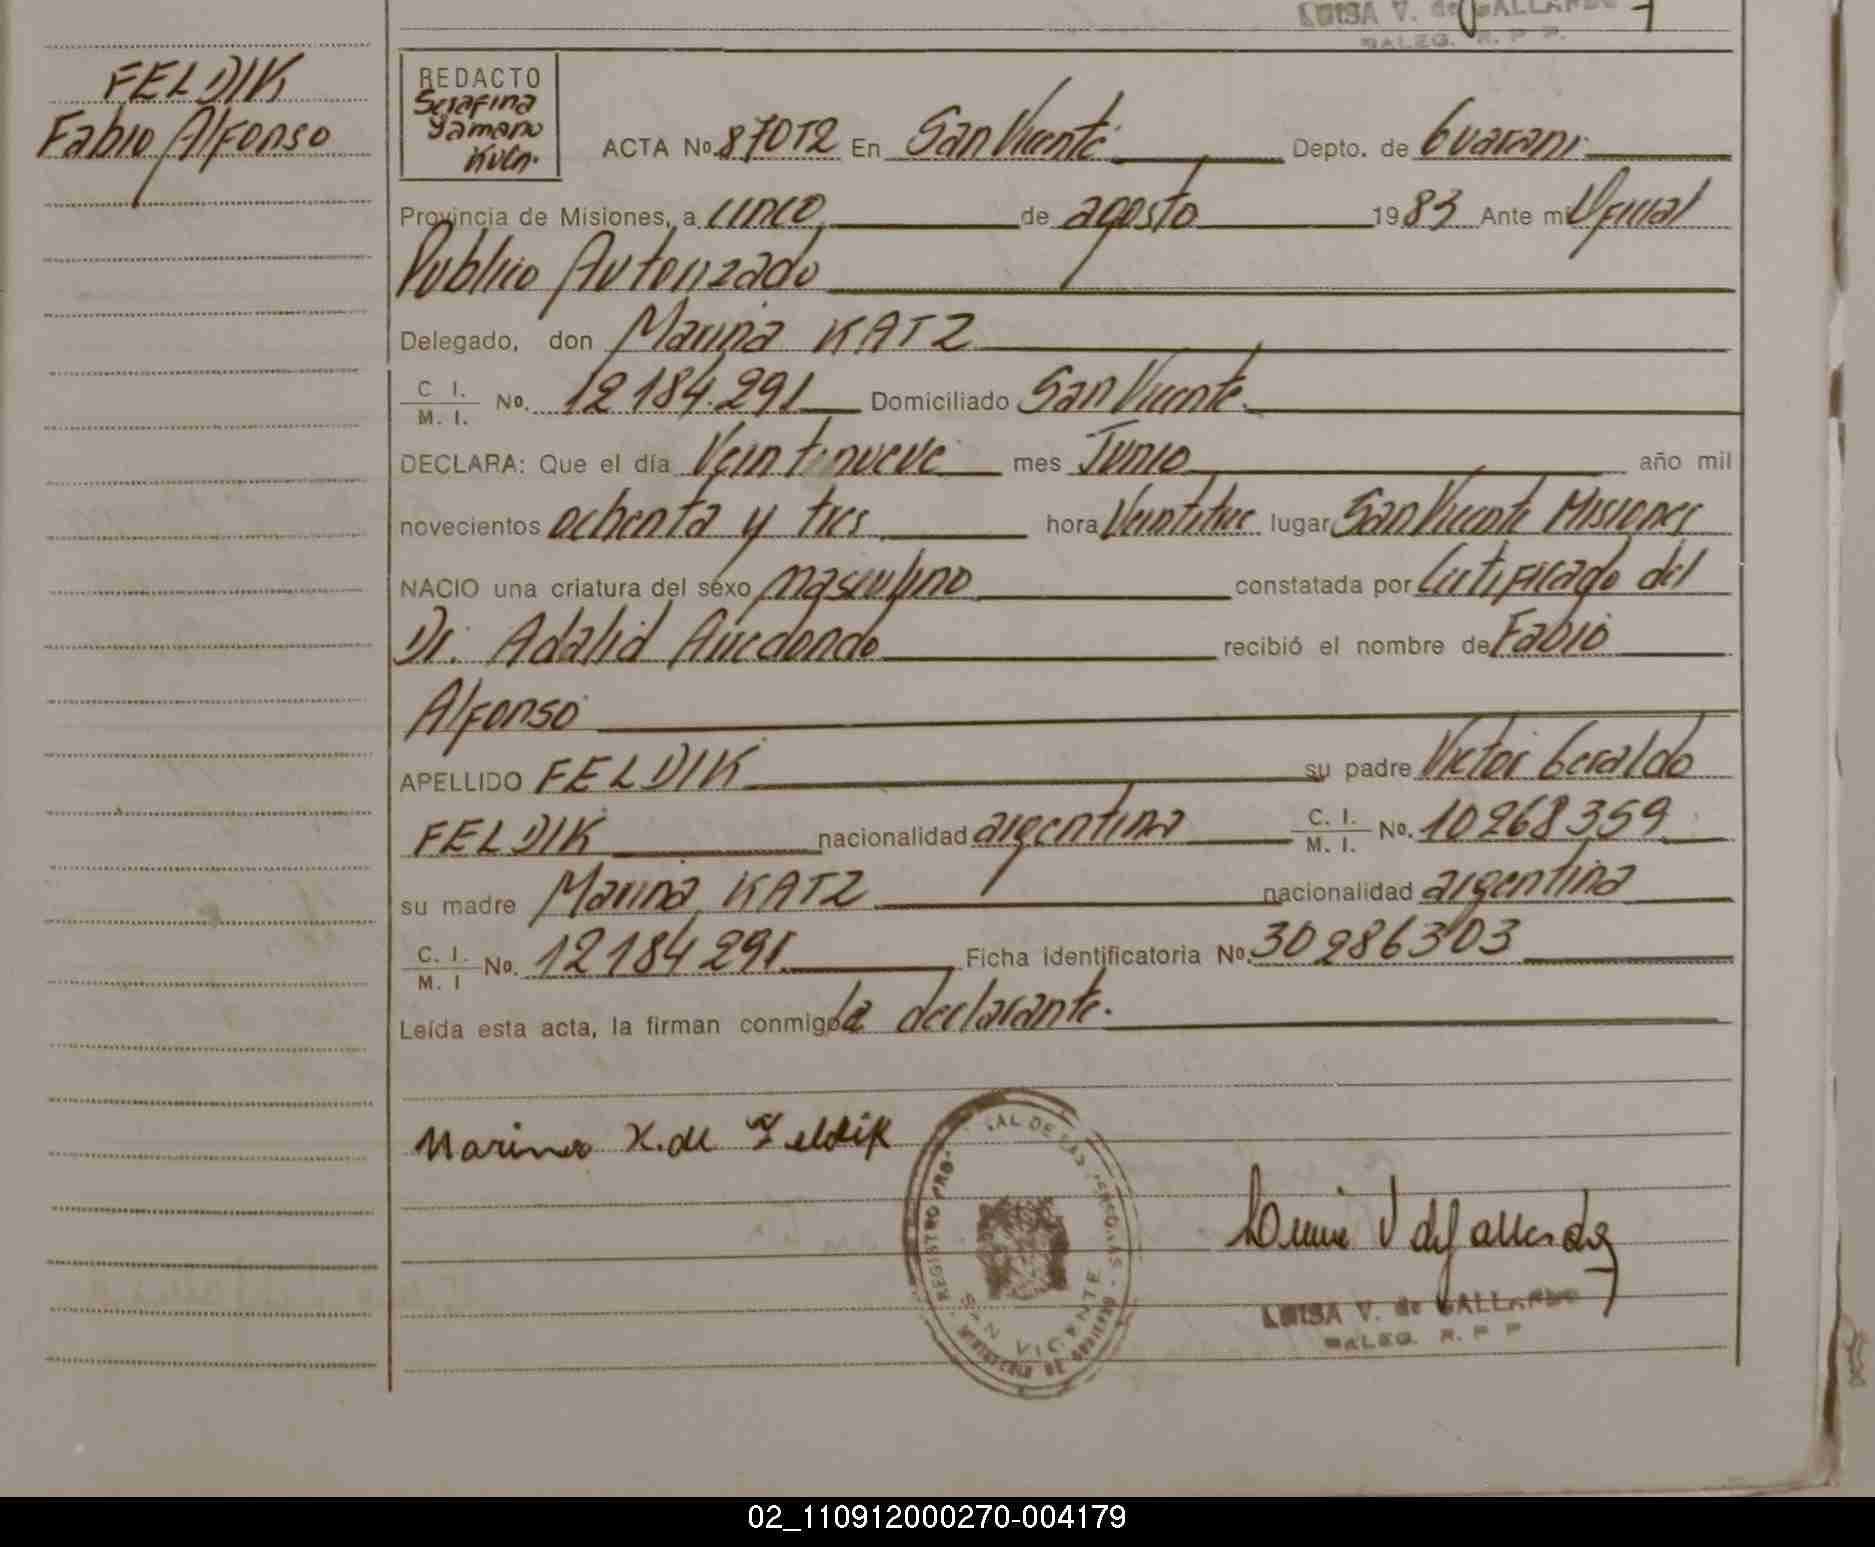 LUISA V. de GALLARDO
DALEG. R. P. P.
FELDIK
Fabio Alfonso
REDACTO
Serafina
Yamano
Kuln.
ACTA No. 870T2 En San Vicente Depto. de Guarani
Provincia de Misiones, a cinco de agosto 1983 Ante mi Oficial
Publico Autorizado
Delegado, don Marina KATZ
C. I.
M. I. No. 12184.291 Domiciliado San Vicente
DECLARA: Que el día Veintinueve mes Junio año mil
novecientos ochenta y tres hora Veintitres lugar San Vicente Misiones
NACIO una criatura del sexo masculino constatada por Certificado del
Dr. Adalid Arredondo recibió el nombre de Fabio
Alfonso
APELLIDO FELDIK su padre Victor Geraldo
FELDIK nacionalidad argentina C. I.
M. I. No. 10268359
su madre Marina KATZ nacionalidad argentina
C. I.
M. I No. 12184291 Ficha identificatoria No. 30286303
Leída esta acta, la firman conmigo la declarante.
Marina K. de Feldik
REGISTRO PRO AL DE LAS PERSONAS
SAN VICENTE
MINISTERIO DE GOBIERNO
Luisa V de Gallardo
LUISA V. de GALLARDO
DALEG. R. P. P
02_110912000270-004179